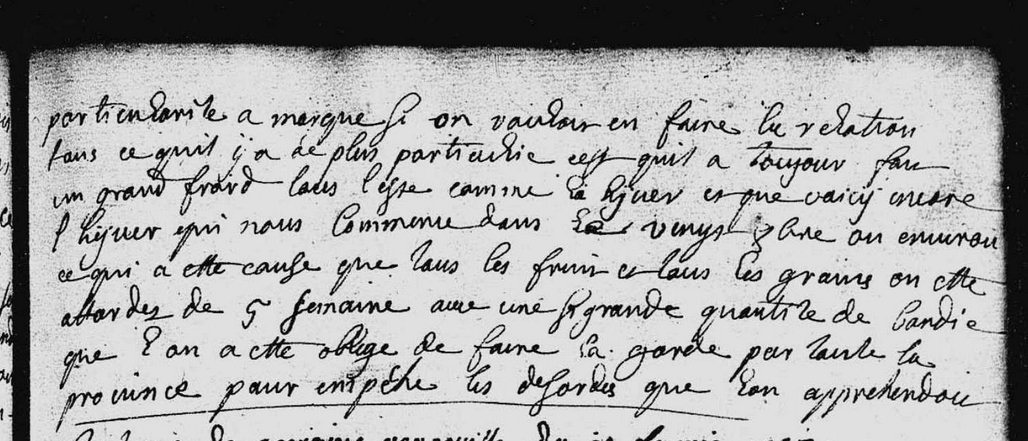 particularite a marque si on vouloit en faire la relation
tous ce quil y a de plus particulie cest quil a toujour fait
un grand froid tous leste comme la hyver et que voicy encore
l hyver qui nous commence dans le vingt 8bre ou environ
ce qui a ette cause que tous les fruit et tous les grains on ette
attardez de 5 semaine avec une si grande quantite de bandie
que lon a ette oblige de faire la garde par toute la
province pour empeche les desordes que lon apprehendoit